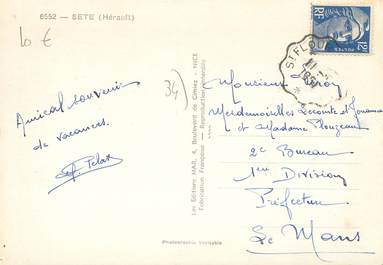 8552 — SETE (Hérault)
10 €
34)
Amical souvenir
de vacances.
Les Editions MAR, 4, Boulevard de Cimiez - NICE
Fabrication Française — Reproduction interdite
Photographie Véritable
RF
12F
POSTES
ST FLO
Monsieur
Mesdemoiselles Lecomte et
et Madame Plouzeau
2e Bureau
1ère Division
Préfecture
Le Mans